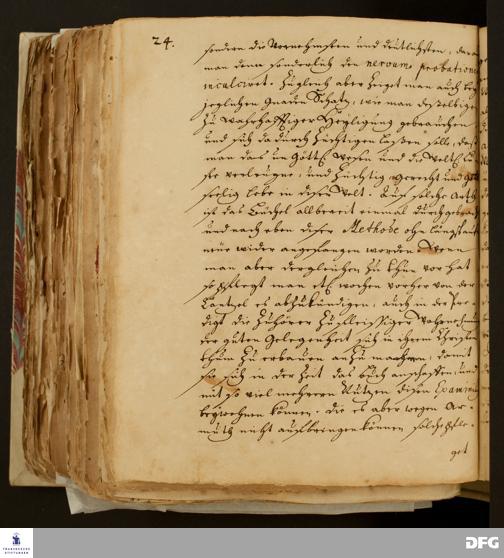 24.
sondern die Vornehmsten und deutlichsten, dar
man denn sonderlich den nervum probationis
inculciret. Zugleich aber zeiget man auch bey
jeglichen Gnaden Schatz, wie man desselbigen
zu wahrhafftiger Heyligung gebrauchen
und sich dadurch züchtigen laßen solle, daß
man das un Göttl. wesen und die weltl. lü
ste verleugne, und züchtig, gerecht und Gott
seelig lebe in dieser welt. Auf solche Arth
ist das Büchel allbereit einmal durchgebracht
und nach eben dieser Methode ohnlängst aufs
neue wieder angefangen worden. Wenn
man aber dergleichen zu thun vor hat
so pfleget man etl. wochen vorher von der
Cantzel es abzukündigen, auch in der Pre-
digt die Zuhörer zu fleissiger wahrnehmung
der guten Gelegenheit sich in ihrem Christen
thum zu erbauen anzumahnen, damit
sie sich in der Zeit das buch anschaffen, und
mit so viel mehreren Nutzen diesen Examini
beywohnen können. Die es aber wegen Ar-
muth nicht aufbringen können, solche pfle-
get
FRANCKESCHE
STIFTUNGEN
DFG